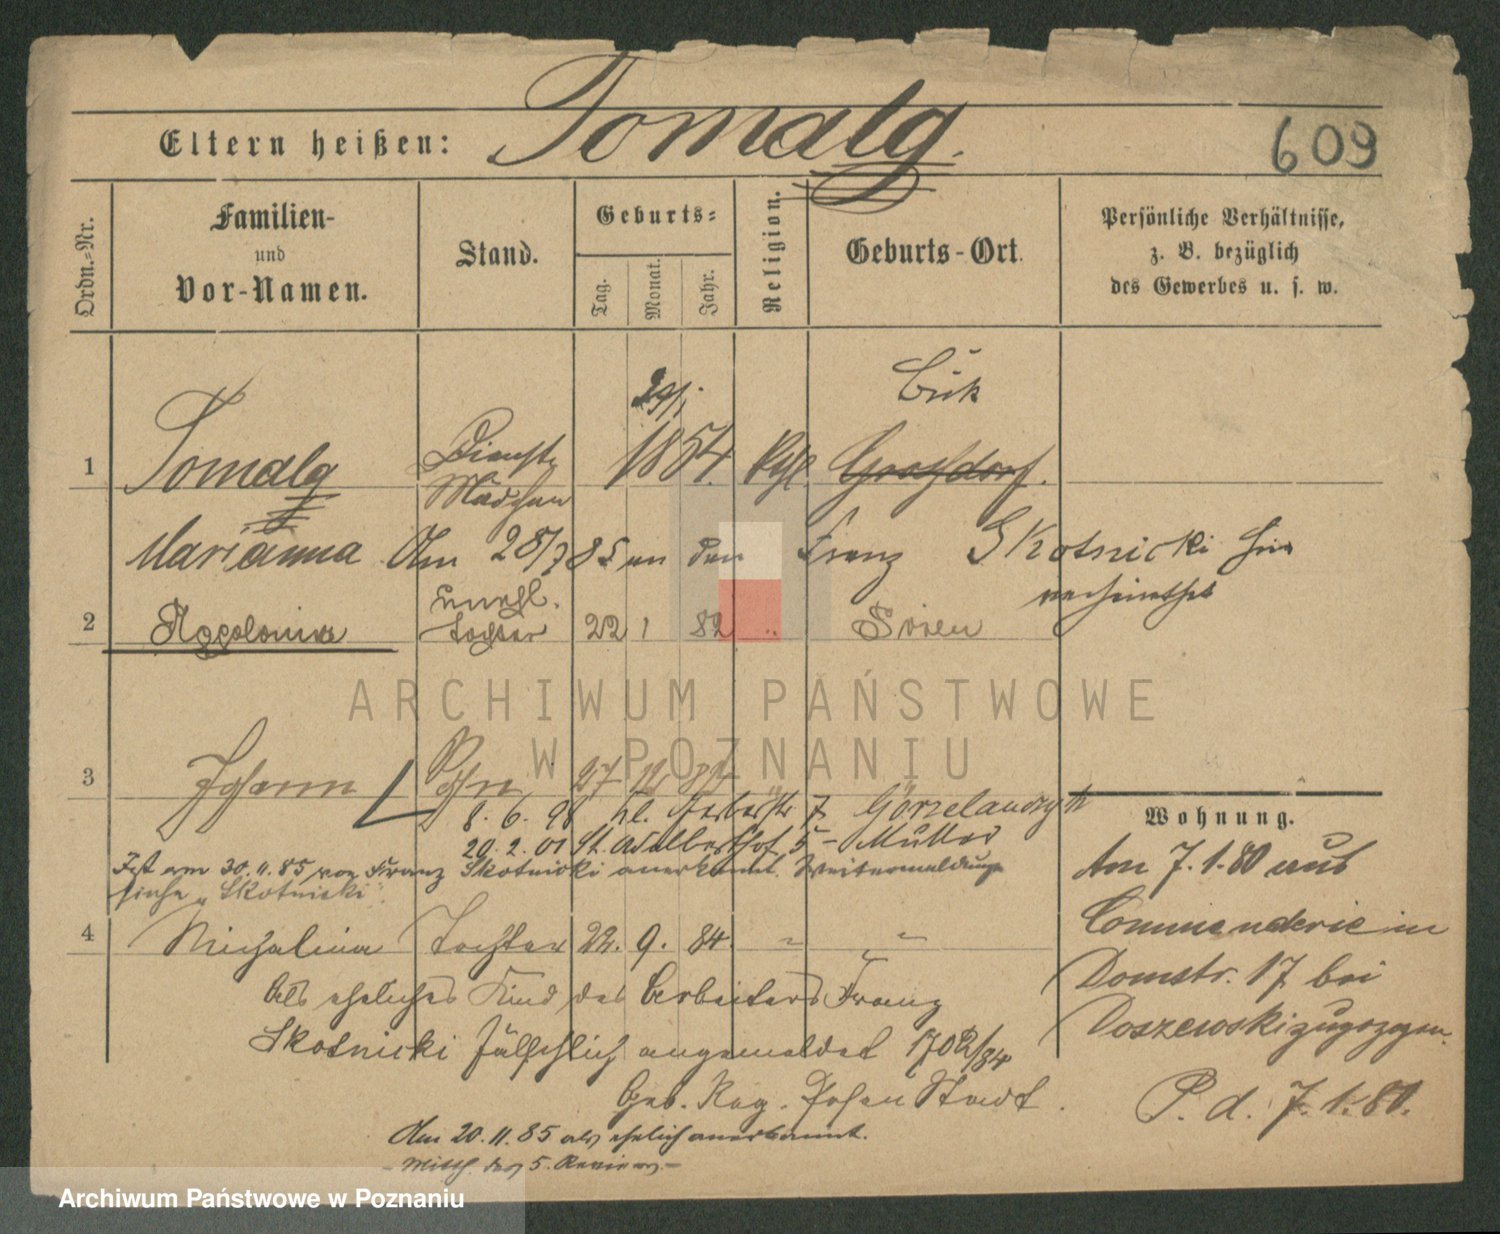 Eltern heißen: Tomalg. 609
Ordn.-Nr.
Familien-
und
Vor-Namen.
Stand.
Geburts-
Tag.
Monat.
Jahr.
Religion.
Geburts-Ort.
Persönliche Verhältnisse,
z. B. bezüglich
des Gewerbes u. s. w.
29/1 Buk
1 Tomalg Dienst- 1854. Kgl. Großdorf.
Mädchen
Marianna Am 28/7 85 an den Franz Skotnicki hier
verheirathet
unehl.
2 Appolonia Tochter 22 1 82 " Posen
3 Johann Sohn 27 12 82
8. 6. 98 kl. Gerberstr 7 Görzelanczyk
20. 2. 01 St. Adalbertstr 5 - Mutter
Ist am 30.11.85 von Franz Skotnicki anerkannt. Weitermeldung
siehe "Skotnicki".
4 Michalina Tochter 22. 9. 84. " "
Als eheliches Kind des Arbeiters Franz
Skotnicki fälschlich angemeldet 1702/84
Geb. Reg. Posen Stadt.
Am 20.11.85 als ehelich anerkannt.
- Mitth. des 5. Reviers -
Wohnung.
Am 7. 1. 80 aus
Commenderie in
Domstr. 17 bei
Doszewski zugezogen.
P. d. 7. 1. 80.
ARCHIWUM PAŃSTWOWE
W POZNANIU
Archiwum Państwowe w Poznaniu